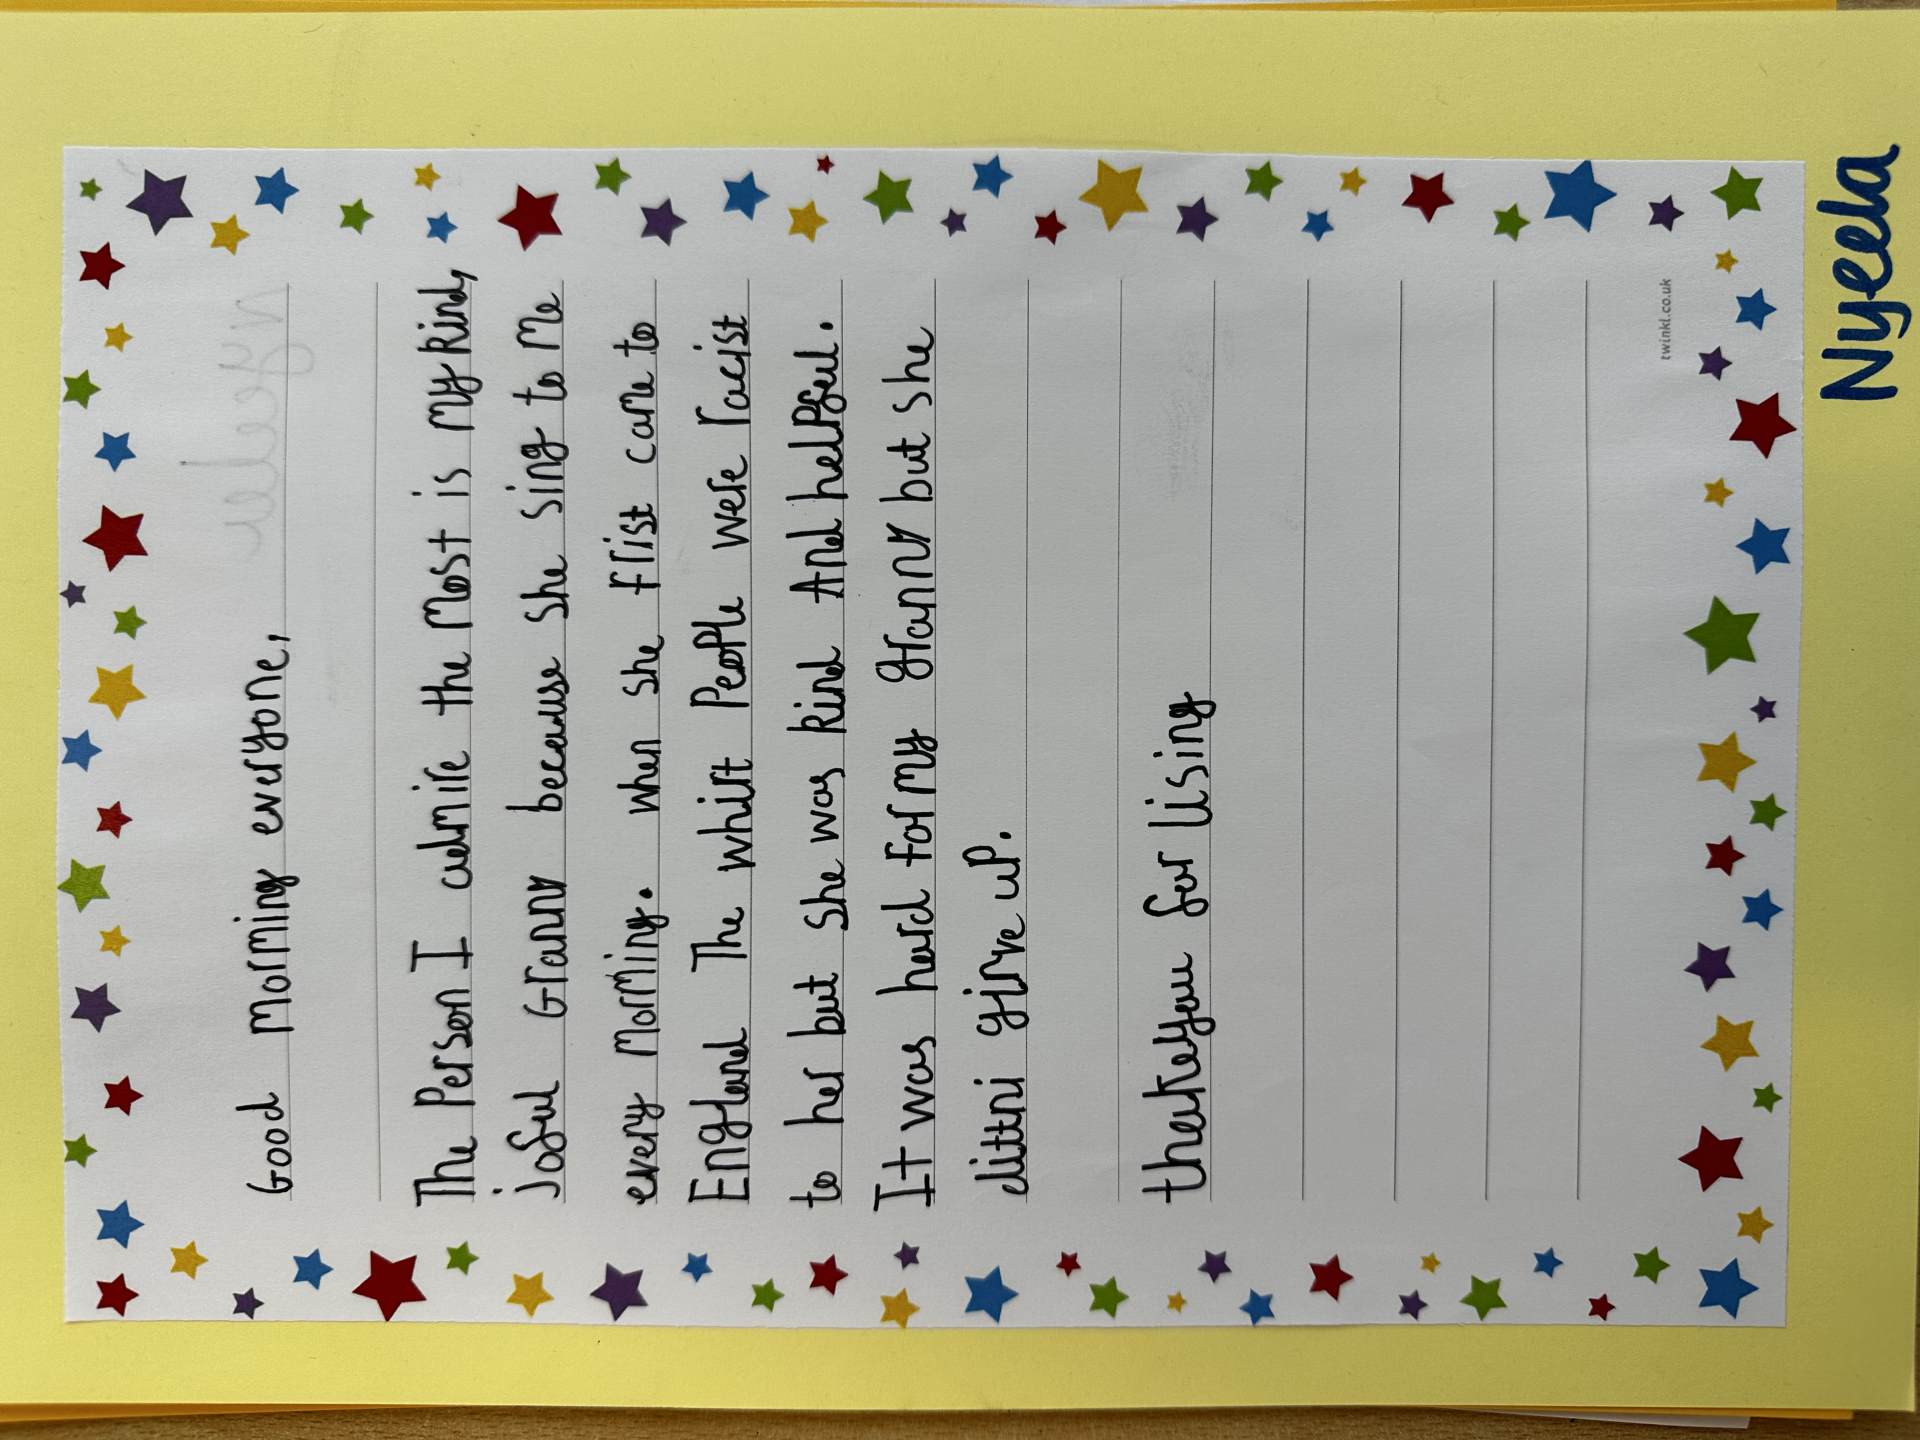 Good morning everyone,
The Person I admire the most is my kind,
joful Granny because she sing to me
every morning. when she frist came to
England The whitt People were racist
to her but she was kind And helpful.
It was hard for my granny but she
dittni give up.
thankeyou for lising
twinkl.co.uk
Nyeela